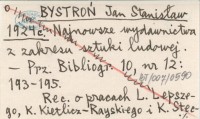 BYSTROŃ Jan Stanisław
1924c. Najnowsze wydawnictwa
z zakresu sztuki ludowej.
- Prz. Bibliogr. 10, nr 12:
193-195.
Rec. o pracach L. Lepsze-
go, K. Kietlicz-Rayskiego i K. Stec-